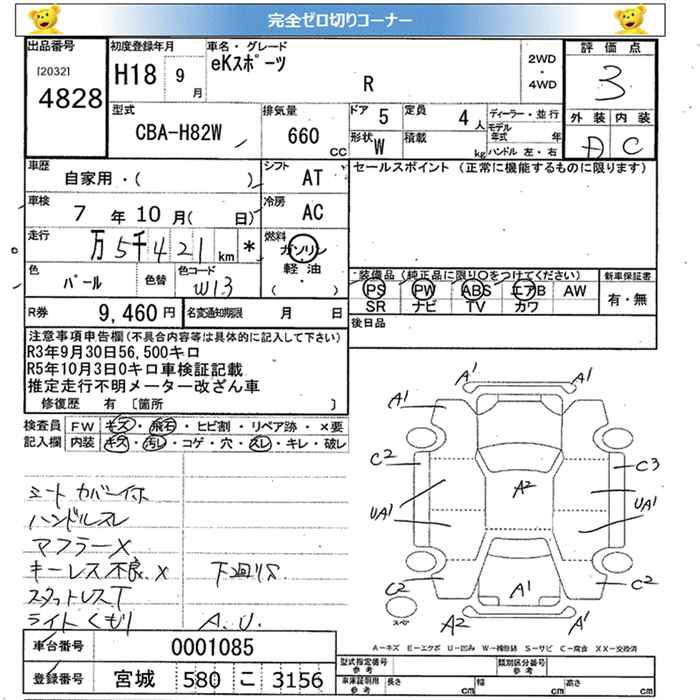 完全ゼロ切りコーナー
出品番号 初度登録年月 車名・グレード 評価点
[2032] H18 9月 eKスポーツ 2WD・4WD 3
4828 R
外装 内装
型式 排気量 ドア 5 定員 4人 ディーラー・並行
CBA-H82W 660 CC 形状 W 積載 kg モデル年式 年 D C
ハンドル 左・右
車歴 シフト セールスポイント (正常に機能するものに限ります)
自家用・( ) AT
車検 冷房
7年10月( 日) AC
走行 燃料
万5千421km * ガソリン
軽油
( ・ )
色 色替 色コード 装備品 (純正品に限り○をつけてください) 新車保証書
パール W13 PS PW ABS エアB AW 有・無
SR ナビ TV カワ
R券 9,460円 名変通知期限 月 日 後日品
注意事項申告欄(不具合内容等は具体的に記入して下さい)
R3年9月30日56,500キロ
R5年10月3日0キロ車検証記載
推定走行不明メーター改ざん車
修復歴 有 〔箇所 〕
検査員 FW キズ・飛石・ヒビ割・リペア跡・×要
記入欄 内装 キズ・汚レ・コゲ・穴・スレ・キレ・破レ
シートカバー付
ハンドルスレ
マフラーX
キーレス不良X 下回りS
スタットレスT
ライトくもり A.U.
A1 A1
A1
C2 C3
A2
UA1 UA1
C2 C2
A1
スペア A2 A1
A-キズ E-エクボ U-凹み W-補修跡 S-サビ C-腐食 XX-交換済
車台番号 0001085
型式指定番号 参考 類別区分番号 参考
登録番号 宮城 580 こ 3156
車庫証明用 参考 長さ cm 幅 cm 高さ cm